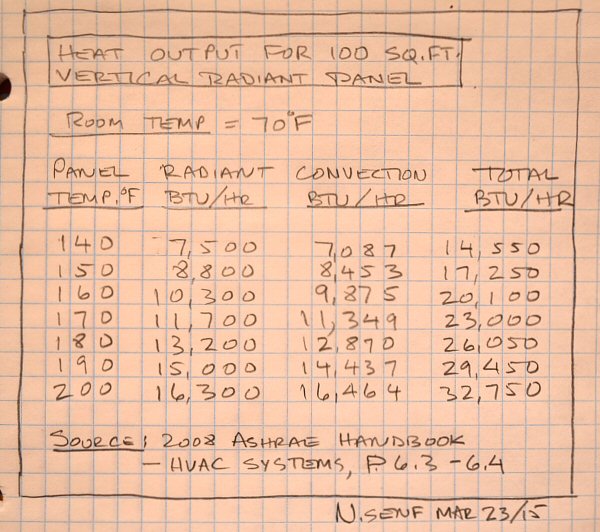 HEAT OUTPUT FOR 100 SQ.FT.
VERTICAL RADIANT PANEL
ROOM TEMP = 70°F
PANEL RADIANT CONVECTION TOTAL
TEMP, °F BTU/HR BTU/HR BTU/HR
140 7,500 7,087 14,550
150 8,800 8,453 17,250
160 10,300 9,875 20,100
170 11,700 11,349 23,000
180 13,200 12,870 26,050
190 15,000 14,437 29,450
200 16,300 16,464 32,750
SOURCE: 2008 ASHRAE HANDBOOK
— HVAC SYSTEMS, P 6.3 - 6.4
N. SENF MAR 23/15